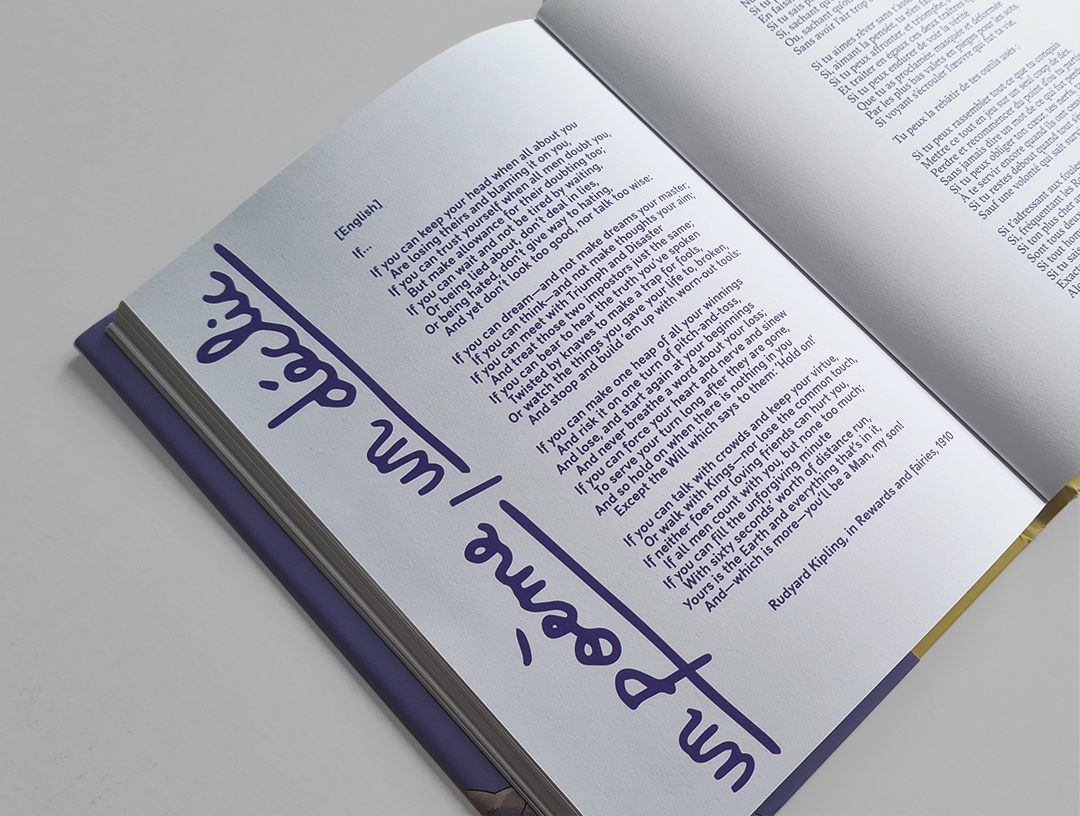 un poème / un déclic
[English]
If...
If you can keep your head when all about you
Are losing theirs and blaming it on you,
If you can trust yourself when all men doubt you,
But make allowance for their doubting too:
If you can wait and not be tired by waiting,
Or being lied about, don't deal in lies,
Or being hated, don't give way to hating,
And yet don't look too good, nor talk too wise:
If you can dream—and not make dreams your master;
If you can think—and not make thoughts your aim;
If you can meet with Triumph and Disaster
And treat those two impostors just the same;
If you can bear to hear the truth you've spoken
Twisted by knaves to make a trap for fools,
Or watch the things you gave your life to, broken,
And stoop and build 'em up with worn-out tools:
If you can make one heap of all your winnings
And risk it on one turn of pitch-and-toss,
And lose, and start again at your beginnings
And never breathe a word about your loss;
If you can force your heart and nerve and sinew
To serve your turn long after they are gone,
And so hold on when there is nothing in you
Except the Will which says to them: 'Hold on!
If you can talk with crowds and keep your virtue,
Or walk with Kings—nor lose the common touch,
If neither foes nor loving friends can hurt you,
If all men count with you, but none too much;
If you can fill the unforgiving minute
With sixty seconds' worth of distance run,
Yours is the Earth and everything that's in it,
And—which is more—you'll be a Man, my son!
Rudyard Kipling, in Rewards and fairies, 1910
En
Si tu sais
Si, sachant
Ou, sachant,
Sans avoir l'air trop
Si tu aimes rêver sans
Si, aimant la pensée, tu n'en
Si tu peux affronter, et triomphe,
Et traiter en égaux ces deux traîtres
Si tu peux endurer de voir la vérité
Que tu as proclamée, masquée et déformée
Par les plus bas valets en pièges pour les sots,
Si voyant s'écrouler l'œuvre qui fut ta vie,
Tu peux la rebâtir de tes outils usés ;
Si tu peux rassembler tout ce que tu conquis
Mettre ce tout en jeu sur un seul coup de dés,
Perdre et recommencer du point d'où tu
Sans jamais dire un mot de ce qui fut
Si tu peux obliger ton cœur, tes nerfs,
À te servir encore quand ils ont
Si tu restes debout quand tout
Sauf une volonté qui sait
Si t'adressant aux
Si, fréquentant les
Si ton plus cher
Sont tous
Si tout
Si tu